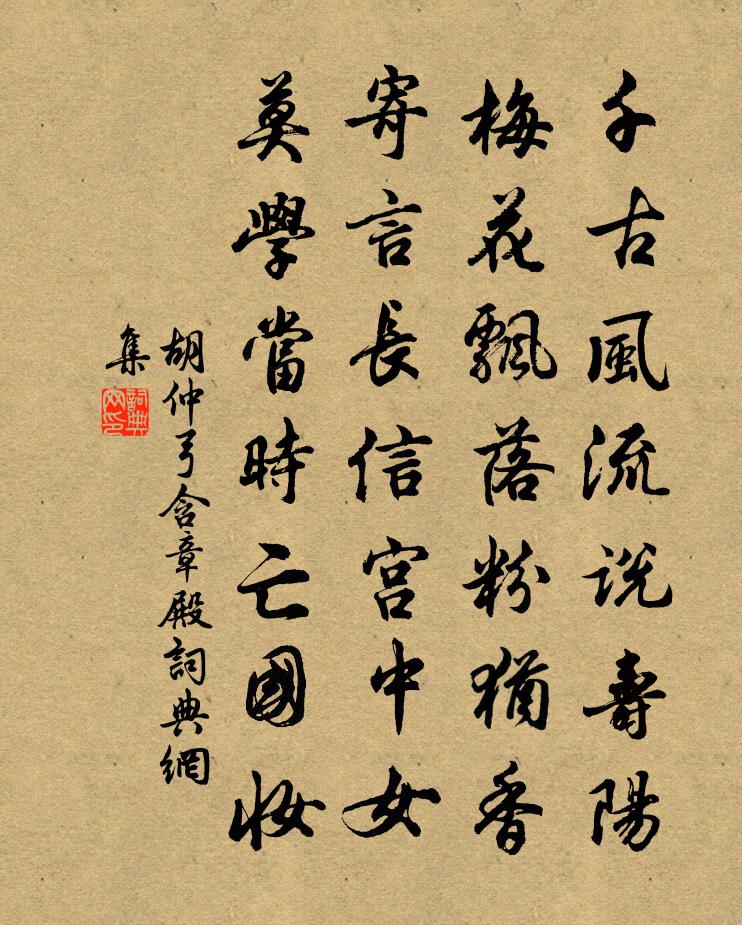 千古風流說壽陽
梅花飄落粉猶香
寄言長信宮中女
莫學當時亡國妝
胡仲弓含章殿詞典網
集
詞典
网印